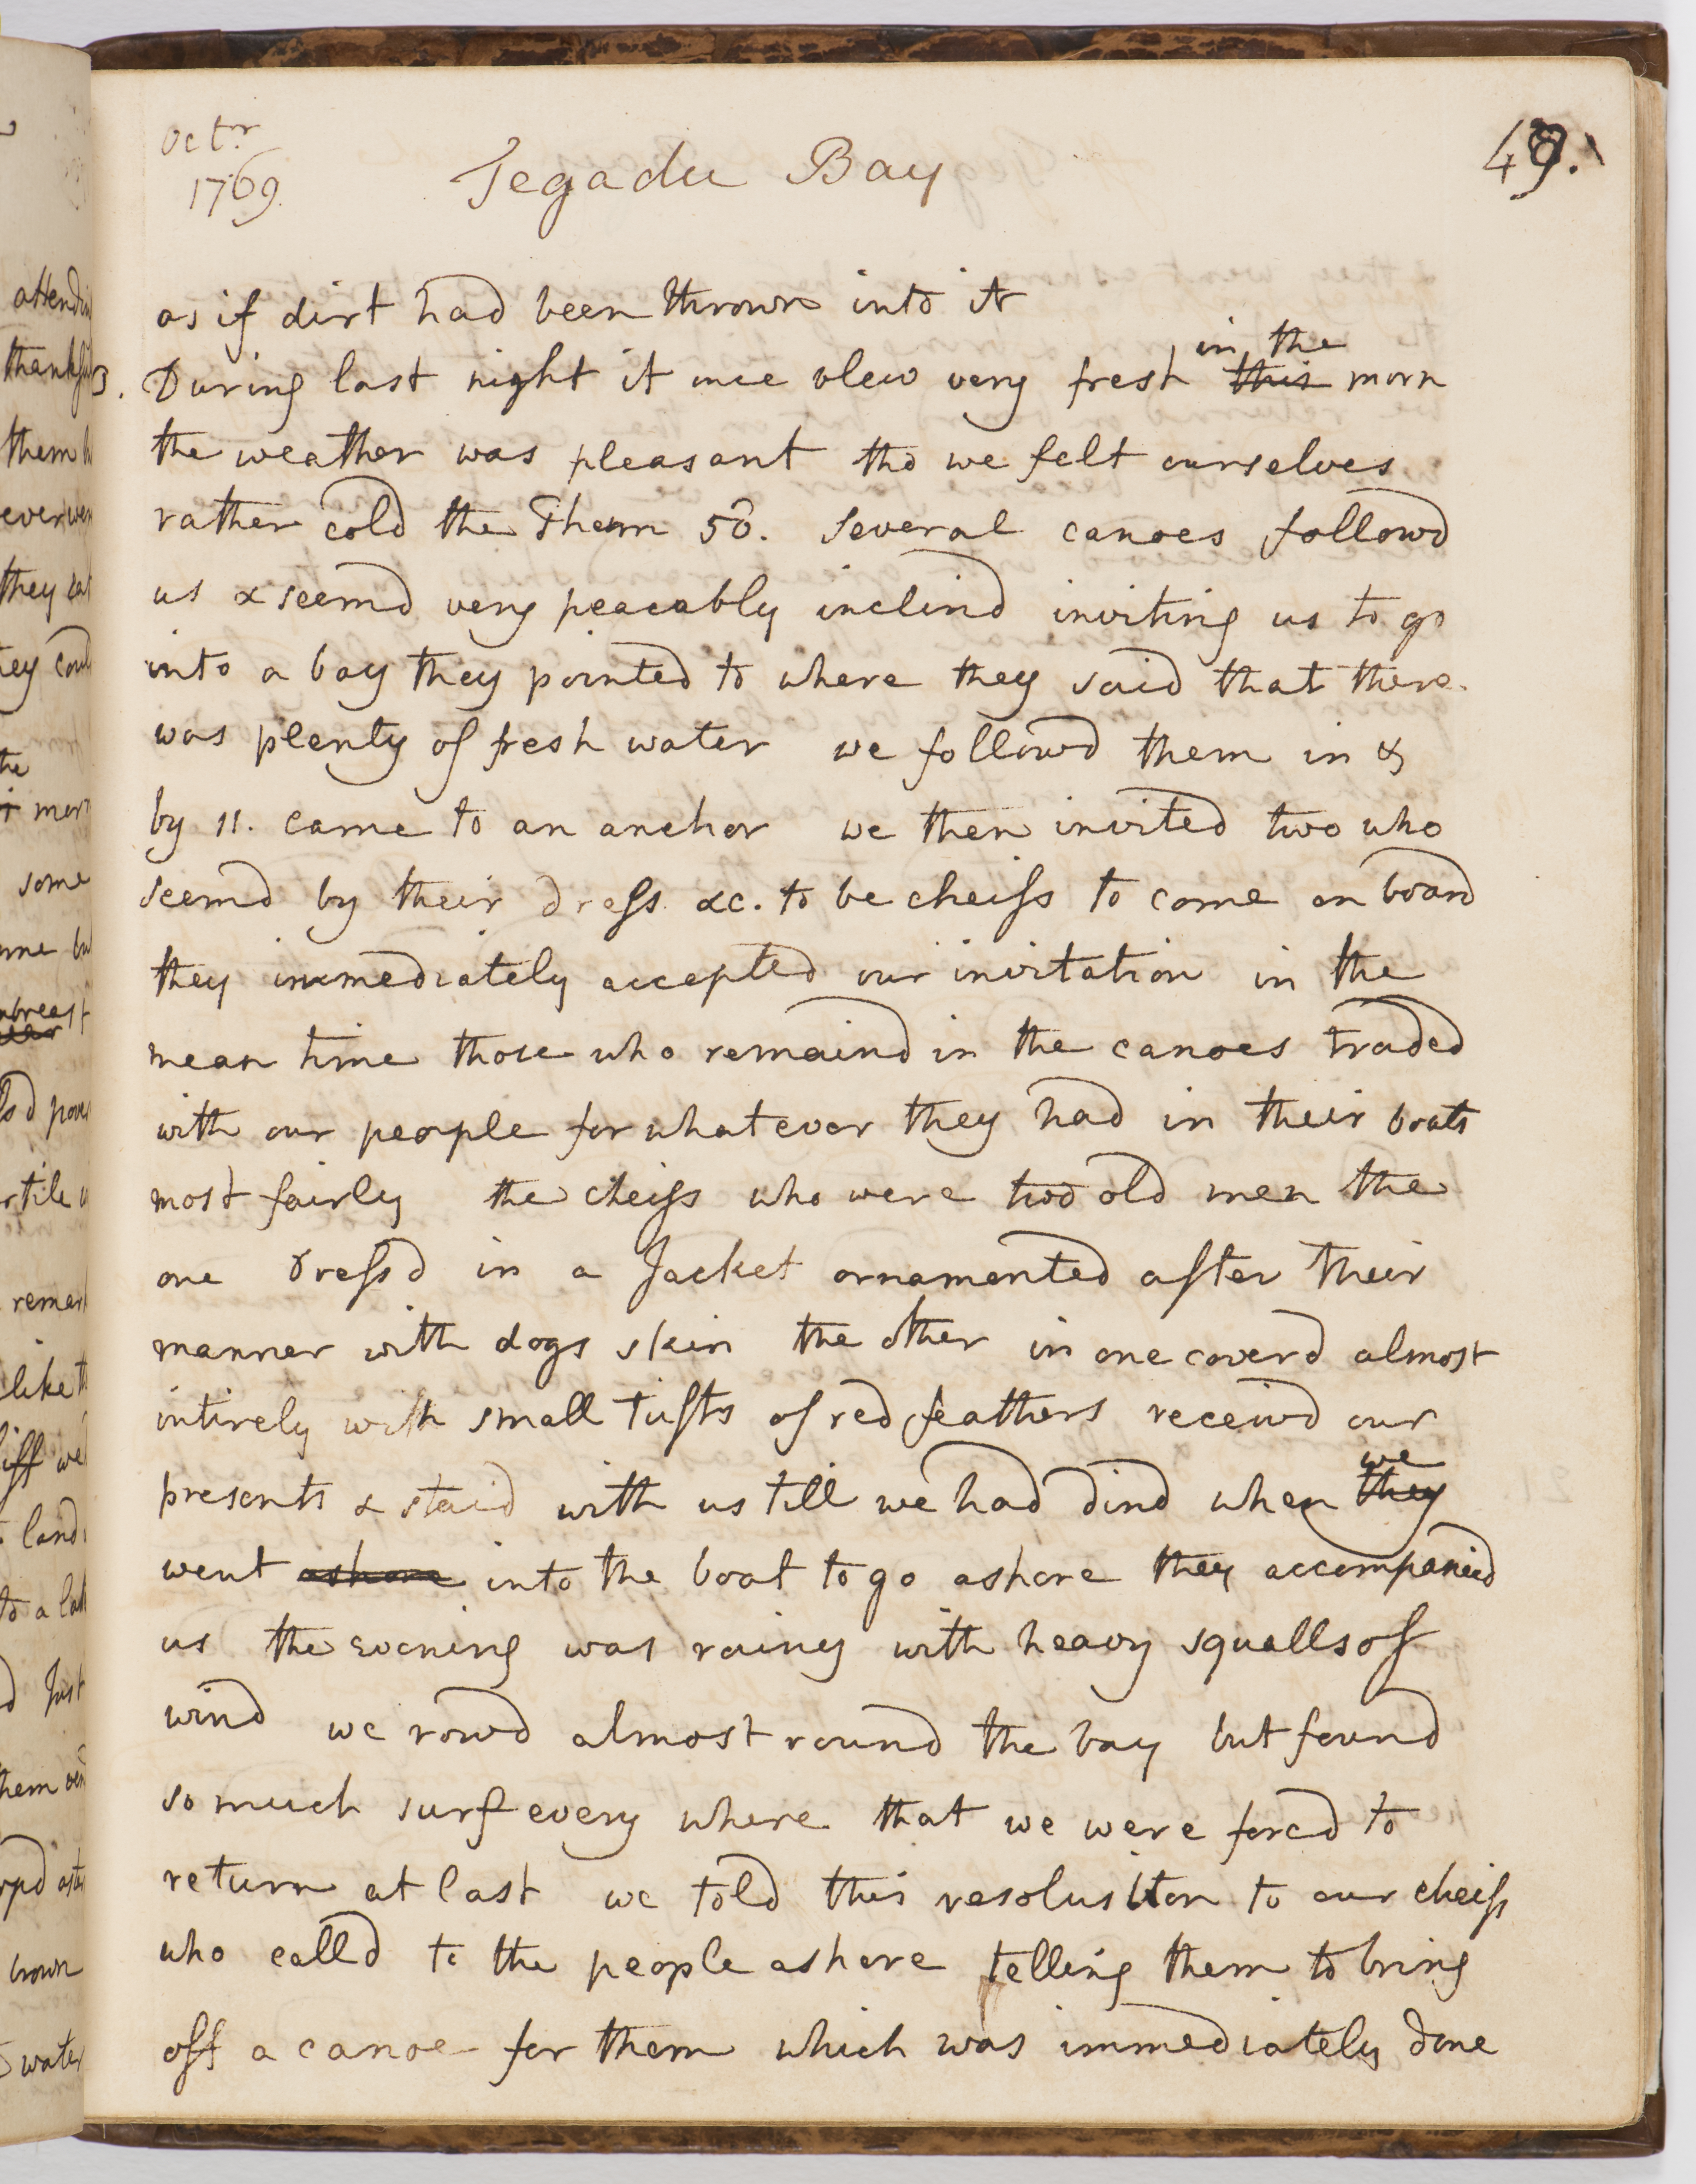 Octr
1769.
Tegadu Bay
49.
as if dirt had been thrown into it
During last night it once blew very fresh in the this morn
the weather was pleasant tho we felt ourselves
rather cold the Therm 50. Several canoes followd
us & seemd very peacably inclind inviting us to go
into a bay they pointed to where they said that there
was plenty of fresh water we followd them in &
by 11. came to an anchor we then invited two who
seemd by their dress &c. to be cheifs to come on board
they immediately accepted our invitation in the
mean time those who remaind in the canoes traded
with our people for whatever they had in their boats
most fairly the cheifs who were two old men the
one dressd in a Jacket ornamented after their
manner with dogs skin the other in one coverd almost
intirely with small tufts of red feathers receivd our
presents & staid with us till we had dind when we they
went ashore into the boat to go ashore they accompanied
us the evening was rainy with heavy squalls of
wind we rowd almost round the bay but found
so much surf every where that we were forcd to
return at last we told this resolusition to our cheifs
who calld to the people ashore telling them to bring
off a canoe for them which was immediately done
attendin
thankfu
them
ever wer
they eat
hey coud
the
mor
some
me bu
abreast
sd pow
rtile
remark
like th
iff we
land
to a lat
d Just
them ven
rpd aste
brown
water